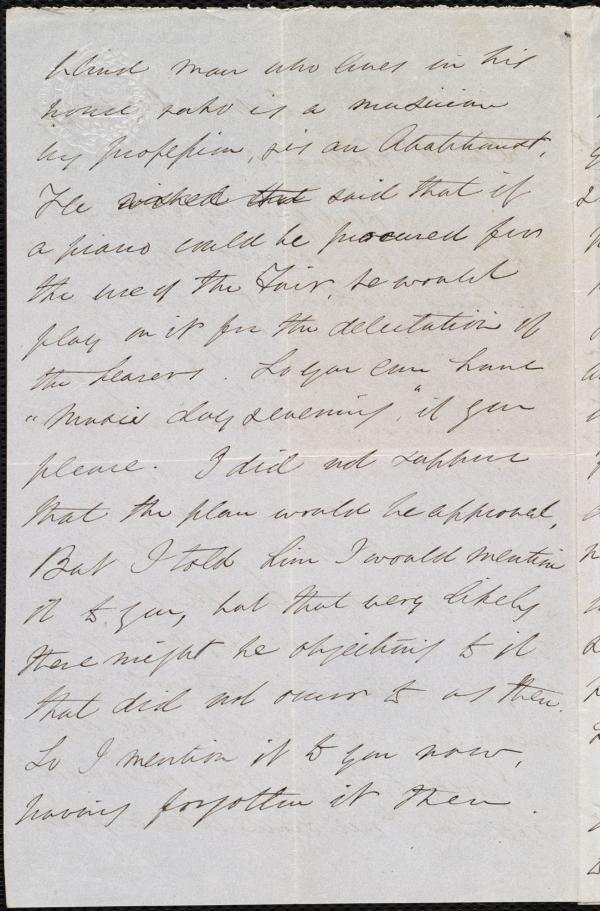 blind man who lives in his
house who is a musician
by profession, is an Abolitionist,
He wished that said that if
a piano could be procured for
the use of the Fair, he would
play on it for the delectation of
the hearers. So you can have
"Music day & evening," if you
please. I did not suppose
that the plan would be approved,
But I told him I would mention
it to you, but that very likely
there might be objections to it
that did not occur to us then.
So I mention it to you now,
having forgotten it then.